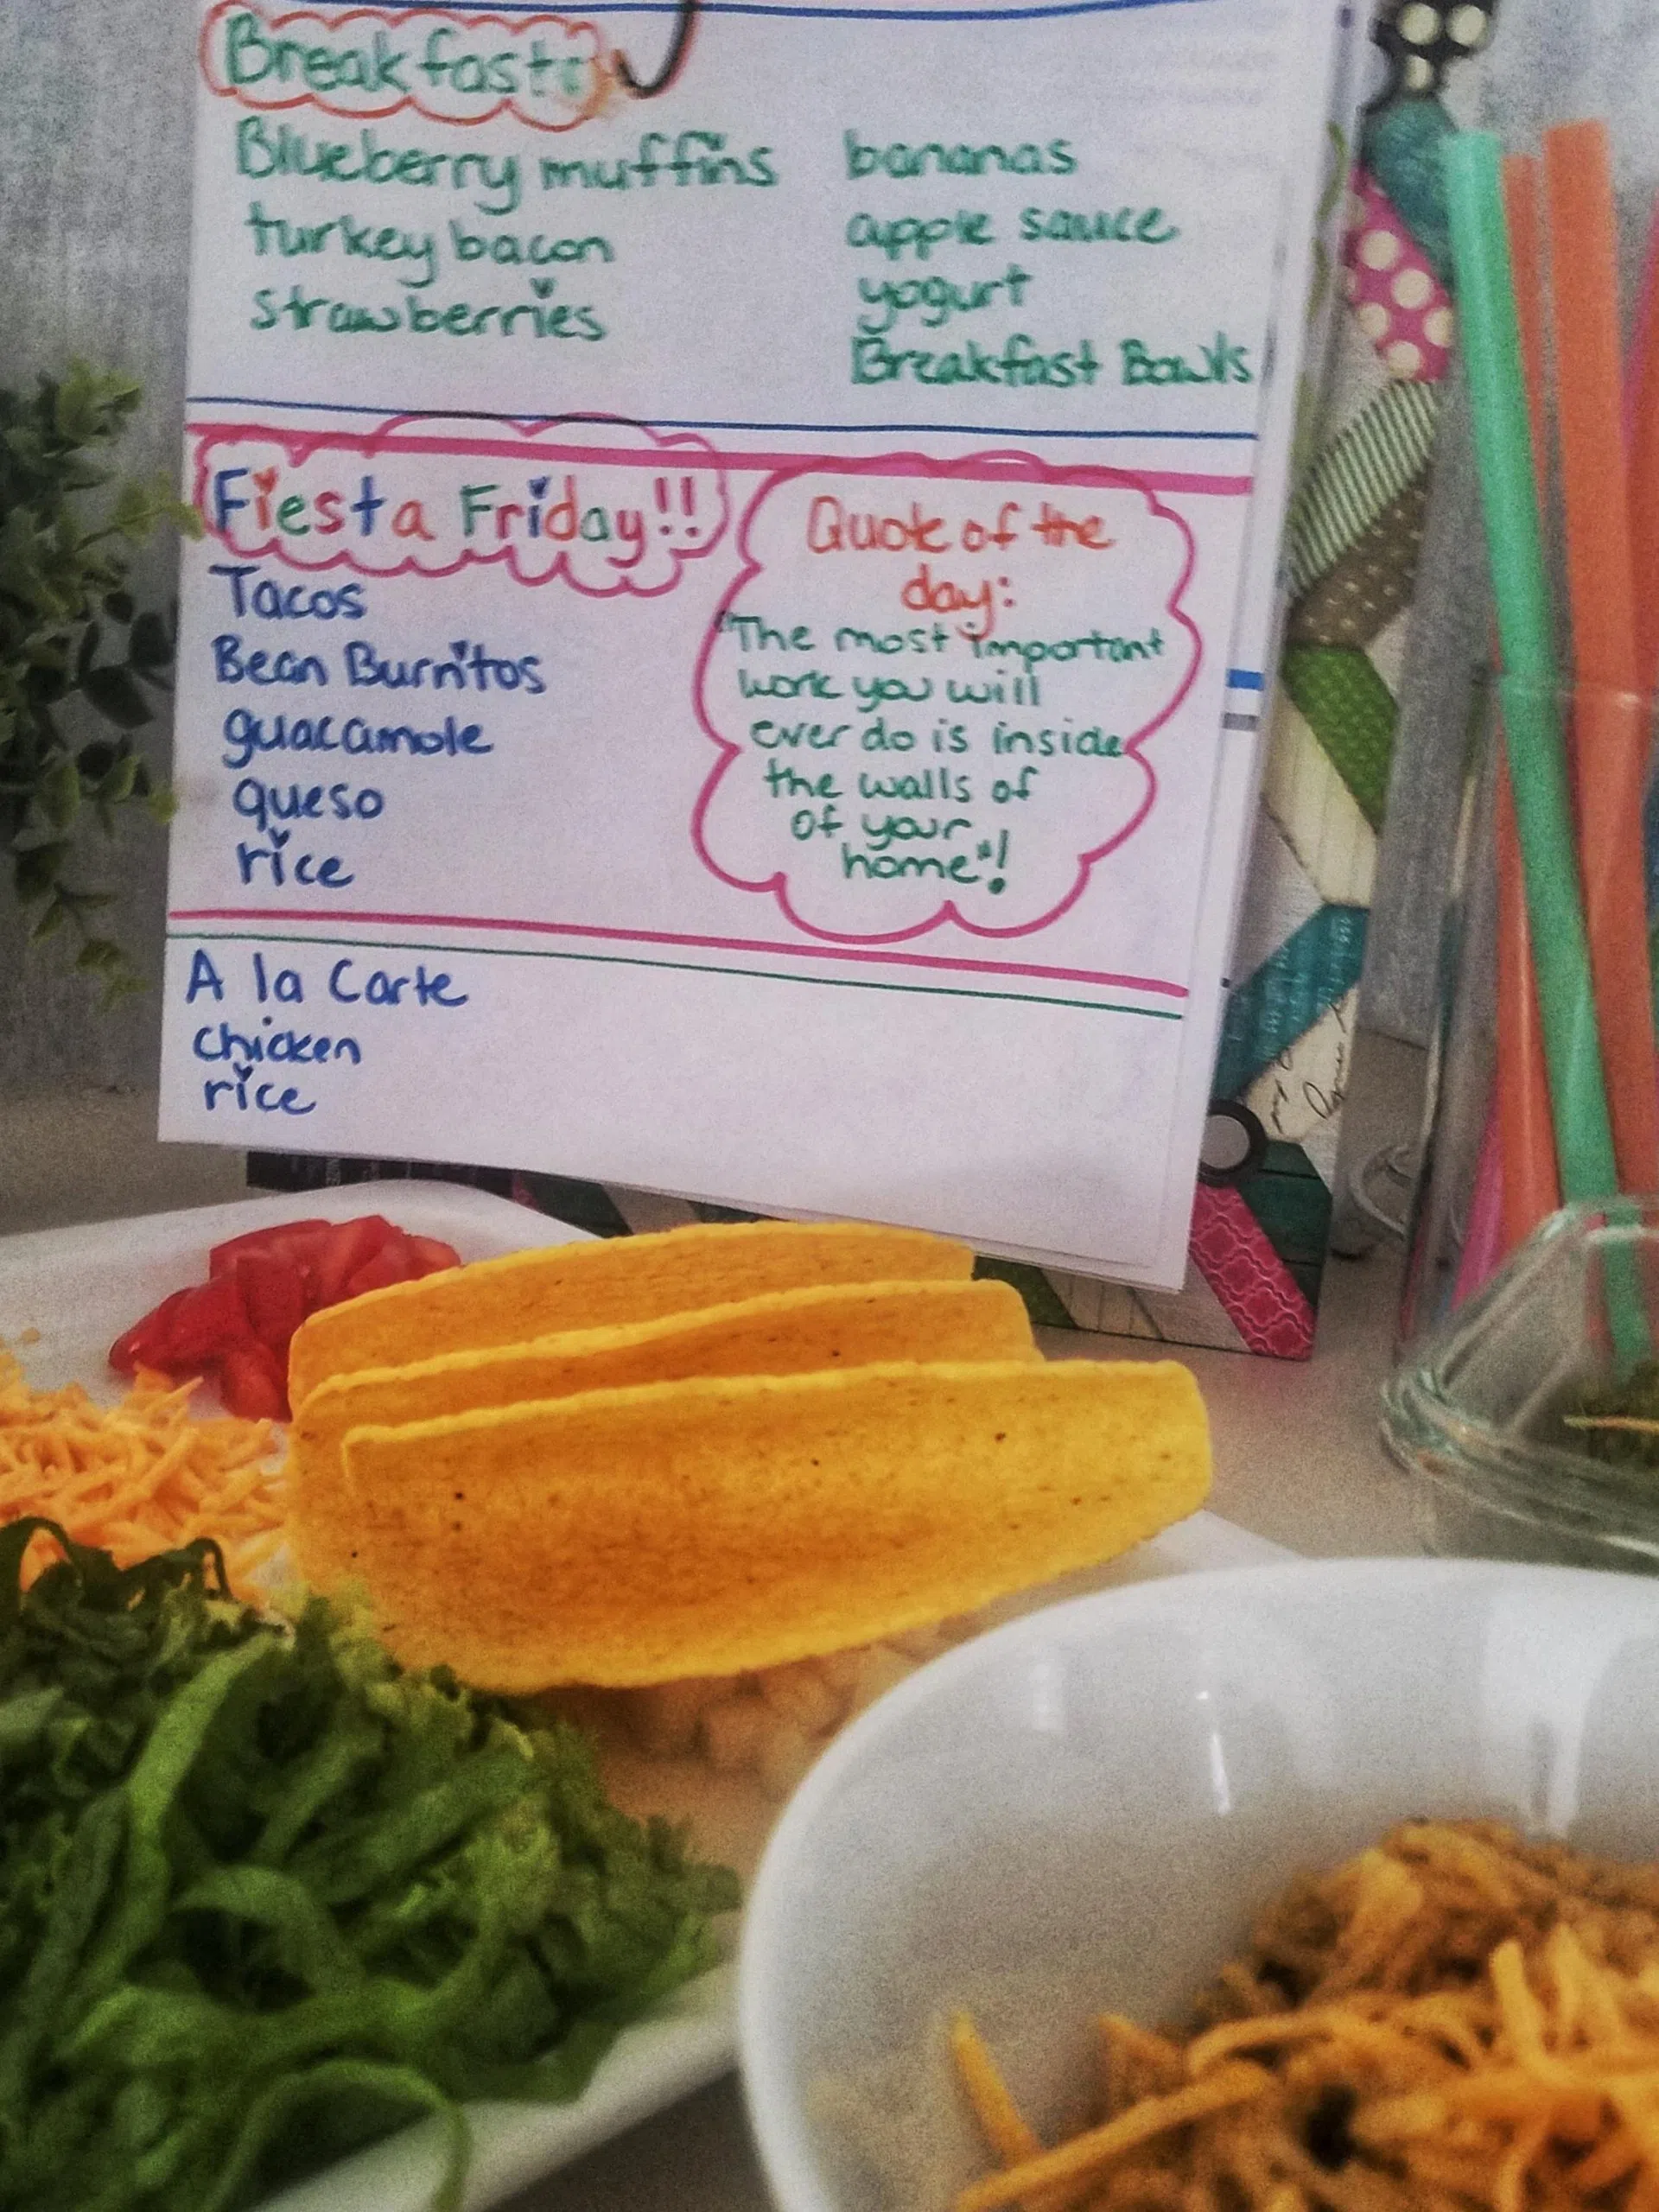 Breakfast
Blueberry muffins
turkey bacon
strawberries
bananas
apple sauce
yogurt
Breakfast Bowls
Fiesta Friday!!
Tacos
Bean Burritos
guacamole
queso
rice
Quote of the
day:
"The most important
work you will
ever do is inside
the walls of
of your
home"!
A la Carte
chicken
rice